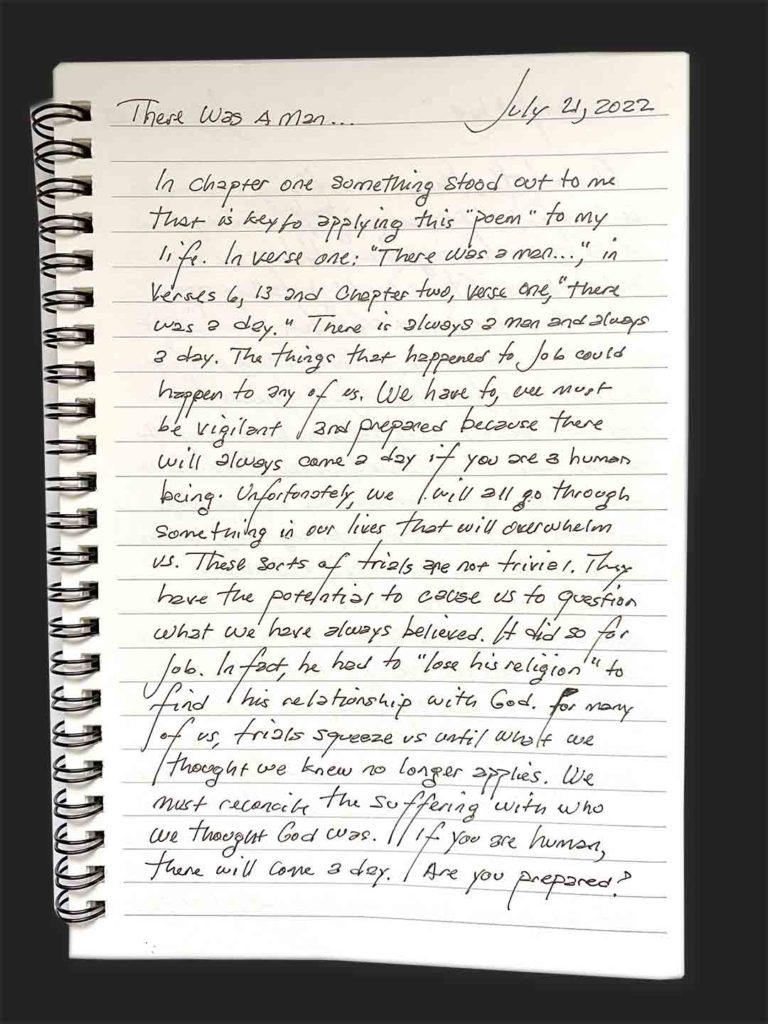 There Was A Man... July 21, 2022
In Chapter one something stood out to me
that is key to applying this "poem" to my
life. In verse one: "There was a man...," in
verses 6, 13 and Chapter two, verse one, "there
was a day." There is always a man and always
a day. The things that happened to Job could
happen to any of us. We have to, we must
be vigilant and prepared because there
will always come a day if you are a human
being. Unfortunately, we will all go through
something in our lives that will overwhelm
us. These sorts of trials are not trivial. They
have the potential to cause us to question
what we have always believed. It did so for
Job. In fact, he had to "lose his religion" to
find his relationship with God. For many
of us, trials squeeze us until what we
thought we knew no longer applies. We
must reconcile the suffering with who
we thought God was. If you are human,
there will come a day. Are you prepared?